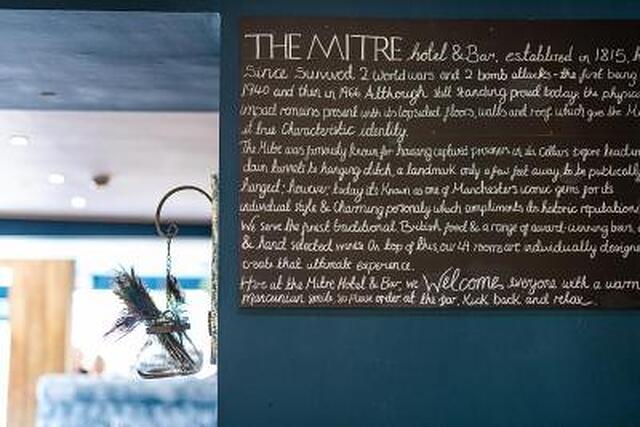 THE MITRE hotel & Bar, established in 1815, h
Since survived 2 world wars and 2 bomb attacks - the first being
1940 and then in 1966 Although still standing proud today, the physica
impact remains present with its lopsided floors, walls and roof which give the M
it true Characteristic identity.
The Mitre was famously known for housing captured prisoners in its Cellars before headin
down tunnels to hanging ditch, a landmark only a few feet away to be publically
hanged; however, today its Known as one of Manchesters iconic gems for its
individual style & Charming personaly which compliments its historic reputation
We serve the finest traditional British food & a range of award-winning bars,
& hand selected wines On top of this, our 44 rooms are individually designe
create that ultimate experience.
Here at the Mitre Hotel & Bar, we Welcome everyone with a warm
mancunian smile so Please order at the bar, Kick back and relax.